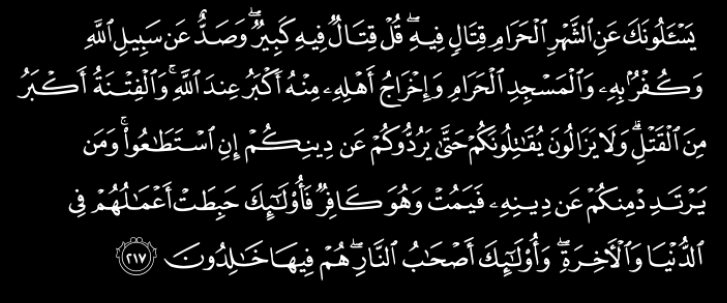 يَسْـَٔلُونَكَ عَنِ ٱلشَّهْرِ ٱلْحَرَامِ قِتَالٍ فِيهِ ۖ قُلْ قِتَالٌ فِيهِ كَبِيرٌ ۖ وَصَدٌّ عَن سَبِيلِ ٱللَّهِ
وَكُفْرٌۢ بِهِۦ وَٱلْمَسْجِدِ ٱلْحَرَامِ وَإِخْرَاجُ أَهْلِهِۦ مِنْهُ أَكْبَرُ عِندَ ٱللَّهِ ۚ وَٱلْفِتْنَةُ أَكْبَرُ
مِنَ ٱلْقَتْلِ ۗ وَلَا يَزَالُونَ يُقَـٰتِلُونَكُمْ حَتَّىٰ يَرُدُّوكُمْ عَن دِينِكُمْ إِنِ ٱسْتَطَـٰعُوا۟ ۚ وَمَن
يَرْتَدِدْ مِنكُمْ عَن دِينِهِۦ فَيَمُتْ وَهُوَ كَافِرٌ فَأُو۟لَـٰٓئِكَ حَبِطَتْ أَعْمَـٰلُهُمْ فِى
ٱلدُّنْيَا وَٱلْـَٔاخِرَةِ ۖ وَأُو۟لَـٰٓئِكَ أَصْحَـٰبُ ٱلنَّارِ ۖ هُمْ فِيهَا خَـٰلِدُونَ ٢١٧